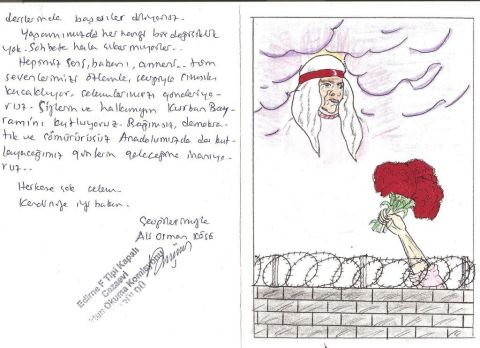 derslerinde başarılar diliyoruz.
Yaşamımızda herhangi bir değişiklik
yok. Sohbete hala çıkarmıyorlar..
Hepimiz Seni, babanı, anneni.. tüm
sevenlerimizi özlemle, sevgiyle
kucaklıyor, selamlarımızı gönderiyo-
ruz. Sizlerin ve halkımızın Kurban Bay-
ramı'nı kutluyoruz. Bağımsız, demokra-
tik ve sömürüsüz Anadolumuzda da kut-
layacağımız günlerin geleceğine inanıyo-
ruz..
Herkese çok selam.
Kendinize iyi bakın.
Sevgilerimizle
Ali Osman KÖSE
Edirne F Tipi Kapalı
Cezaevi
Mektup Okuma Komisyonu